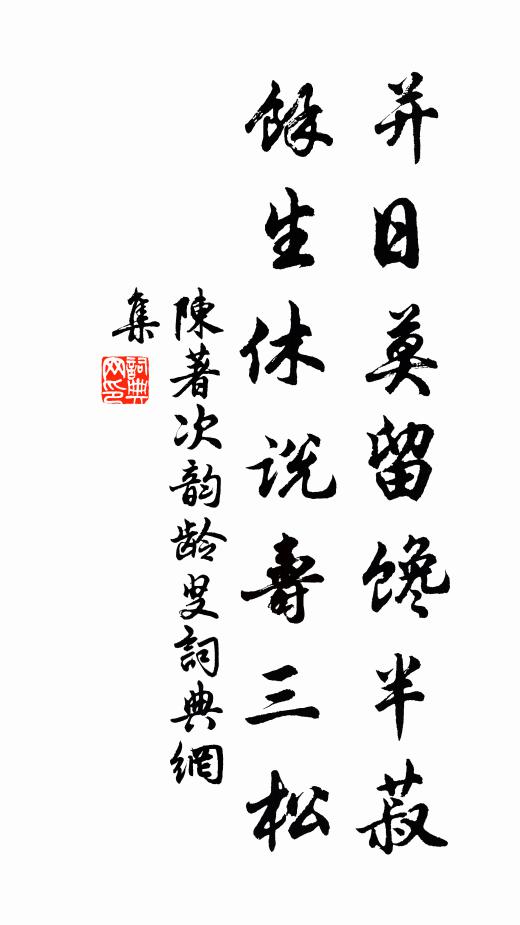 并日莫留馋半菽
餘生休说壽三松
陳著次韵龄叟詞典網
集
詞典网印